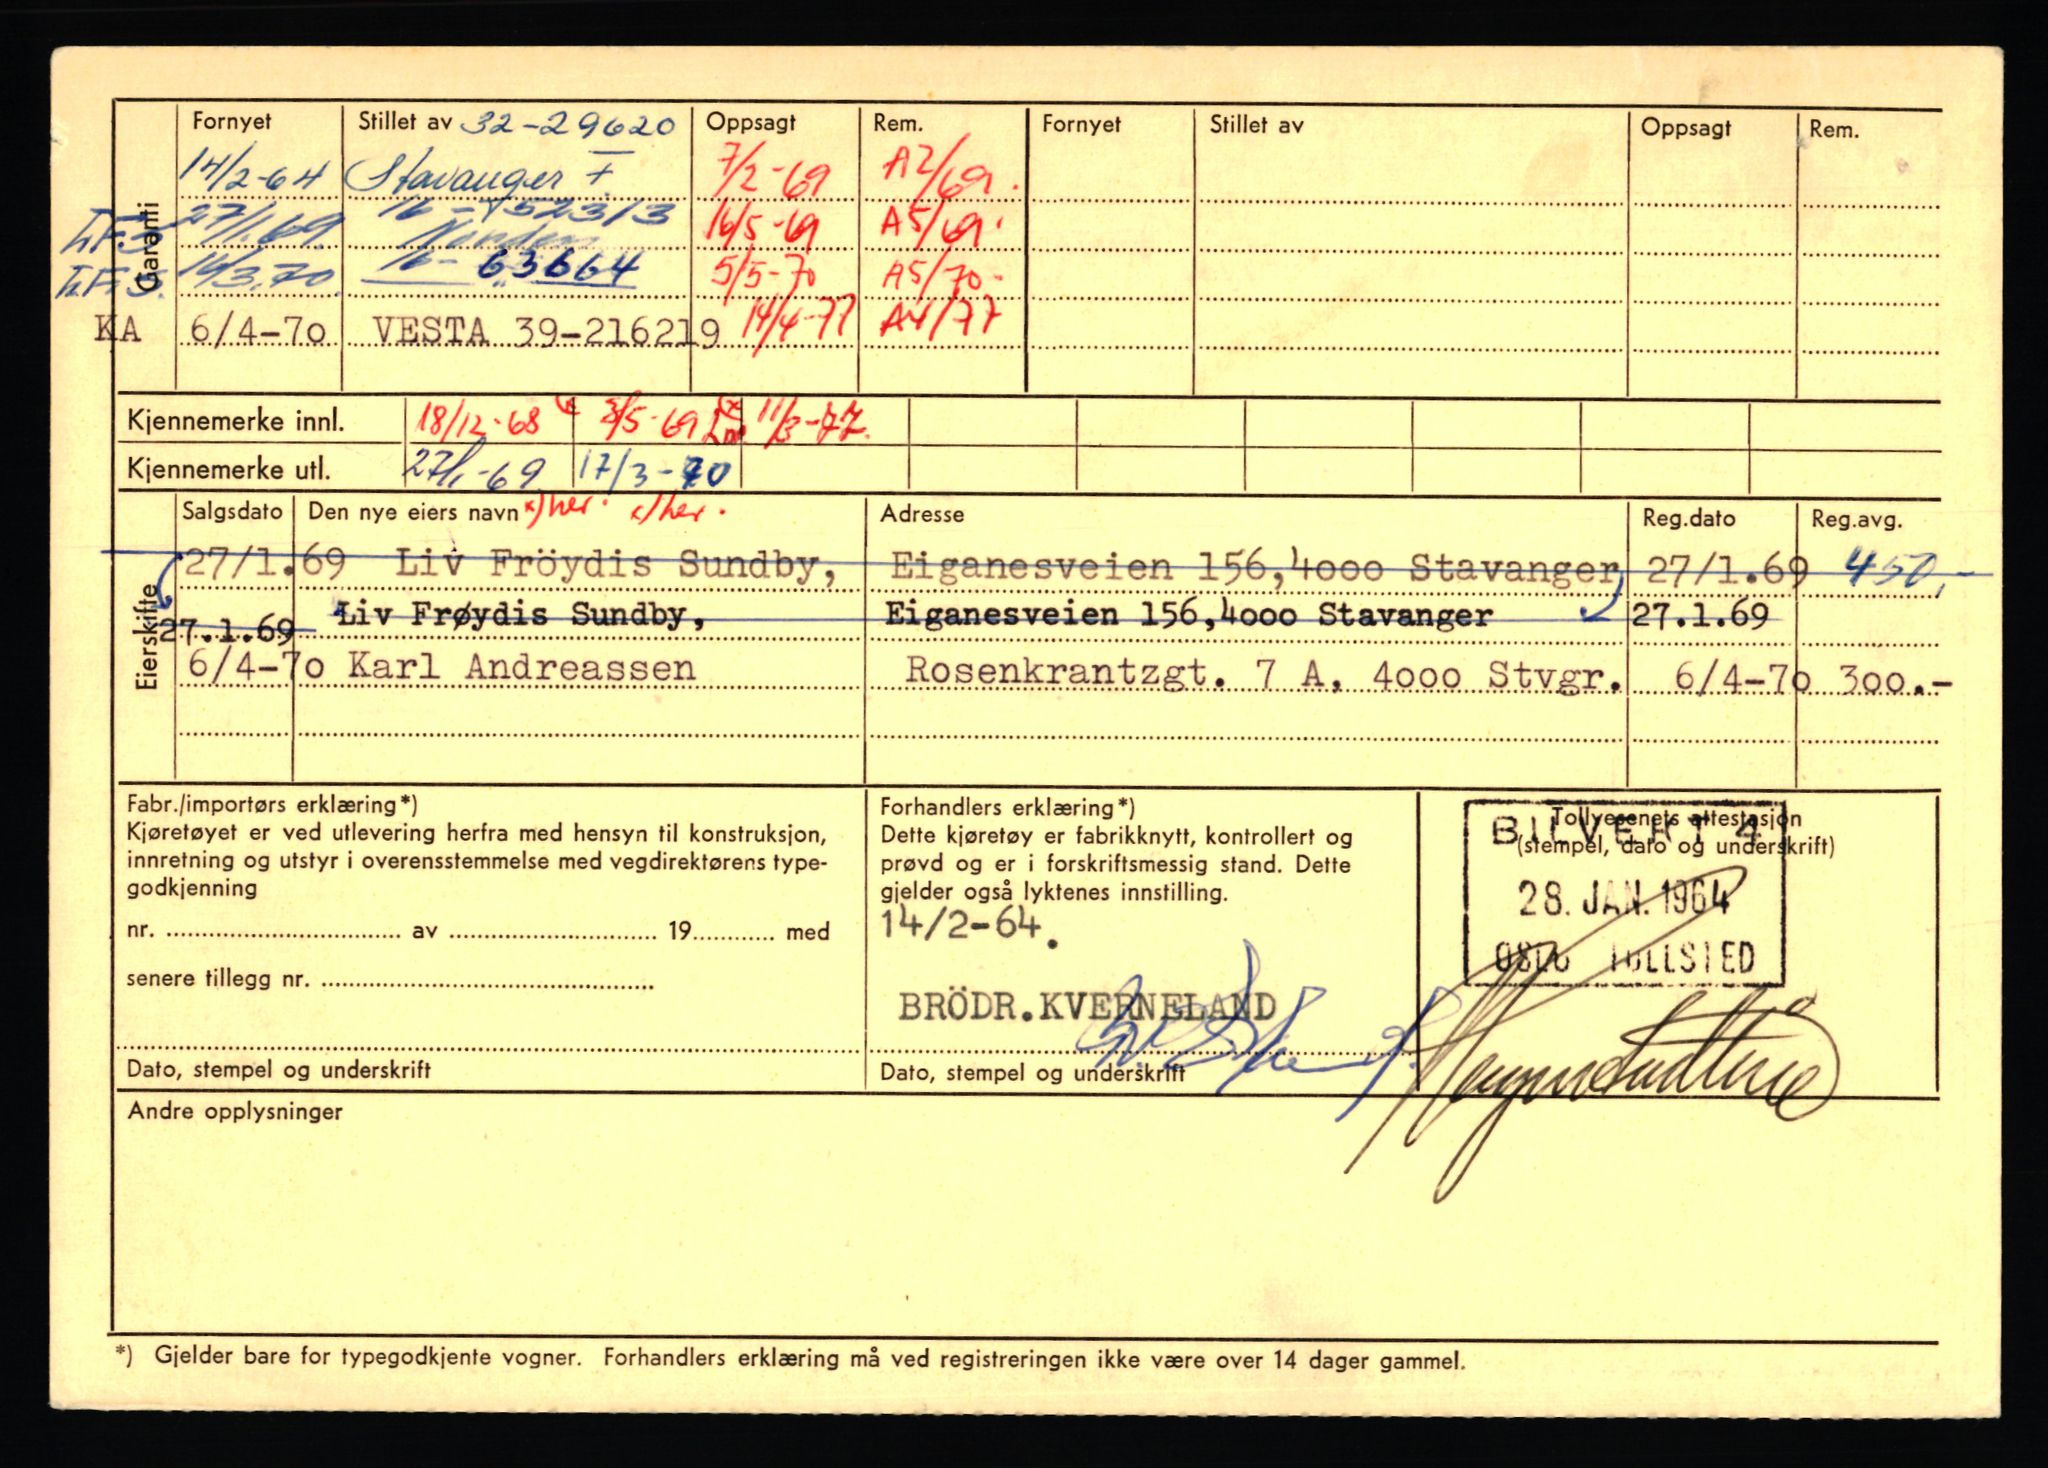 Fornyet Stillet av 32-29620 Oppsagt Rem. Fornyet Stillet av Oppsagt Rem.
Garanti
14/2-64 Stavanger 7/2-69 A2/69.
L.F.S. 27/1.69. 16/5-69 A5/69.
L.F.S. 16/3.70. 16- 63664 5/5-70 A5/70-
KA 6/4-70 VESTA 39-216219 14/4-77 A4/77
Kjennemerke innl. 18/12-68 5/5-69 11/3-77.
Kjennemerke utl. 27/1-69 17/3-70
Salgsdato Den nye eiers navn x) her. x) her. Adresse Reg.dato Reg.avg.
Eierskifte
27/1.69 Liv Fröydis Sundby, Eiganesveien 156,4000 Stavanger 27/1.69 450,-
27.1.69 Liv Frøydis Sundby, Eiganesveien 156,4000 Stavanger 27.1.69
6/4-70 Karl Andreassen Rosenkrantzgt. 7 A, 4000 Stvgr. 6/4-70 300.-
Fabr./importørs erklæring*)
Kjøretøyet er ved utlevering herfra med hensyn til konstruksjon,
innretning og utstyr i overensstemmelse med vegdirektørens type-
godkjenning
nr. .......... av .......... 19.......... med
senere tillegg nr. ..........
Dato, stempel og underskrift
Forhandlers erklæring*)
Dette kjøretøy er fabrikknytt, kontrollert og
prøvd og er i forskriftsmessig stand. Dette
gjelder også lyktenes innstilling.
14/2-64.
BRÖDR.KVERNELAND
Dato, stempel og underskrift
Tollvesenets attestasjon
(stempel, dato og underskrift)
28. JAN. 1964
OSLO TOLLSTED
Andre opplysninger
*) Gjelder bare for typegodkjente vogner. Forhandlers erklæring må ved registreringen ikke være over 14 dager gammel.